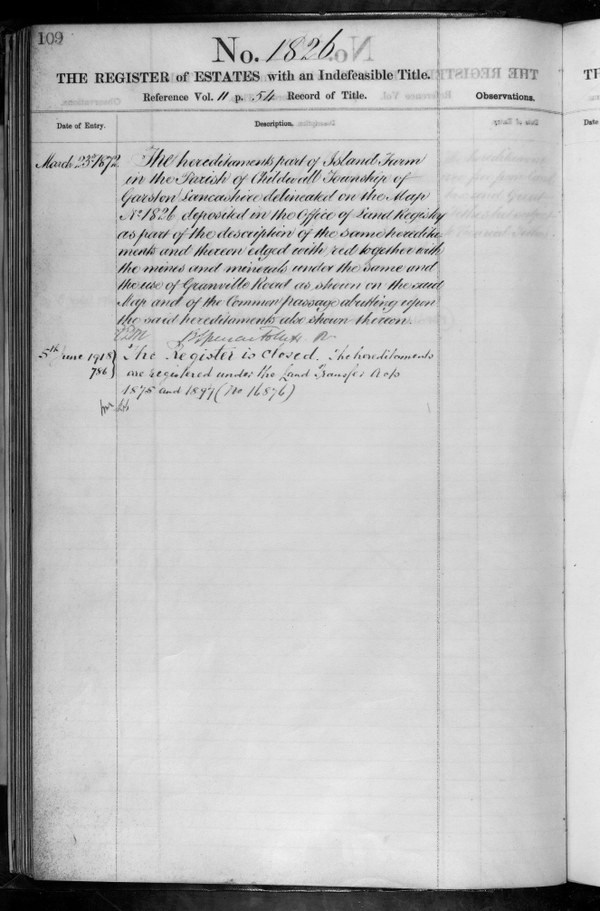 109
No. 1826
THE REGISTER of ESTATES with an Indefeasible Title.
Reference Vol. 11 p. 54 Record of Title.
Observations.
Date of Entry.
Description.
March 23d 1872
The hereditaments part of Island Farm
in the Parish of Childwall Township of
Garston Lancashire delineated on the Map
No 1826 deposited in the Office of Land Registry
as part of the description of the same heredita
ments and thereon edged with red together with
the mines and minerals under the same and
the use of Granville Road as shown on the said
Map and of the Common passage abutting upon
the said hereditaments also shown thereon.
Spencer Follett R
5th June 1918
786
The Register is closed. The hereditaments
are registered under the Land Transfer Acts
1875 and 1897 (No 16876)